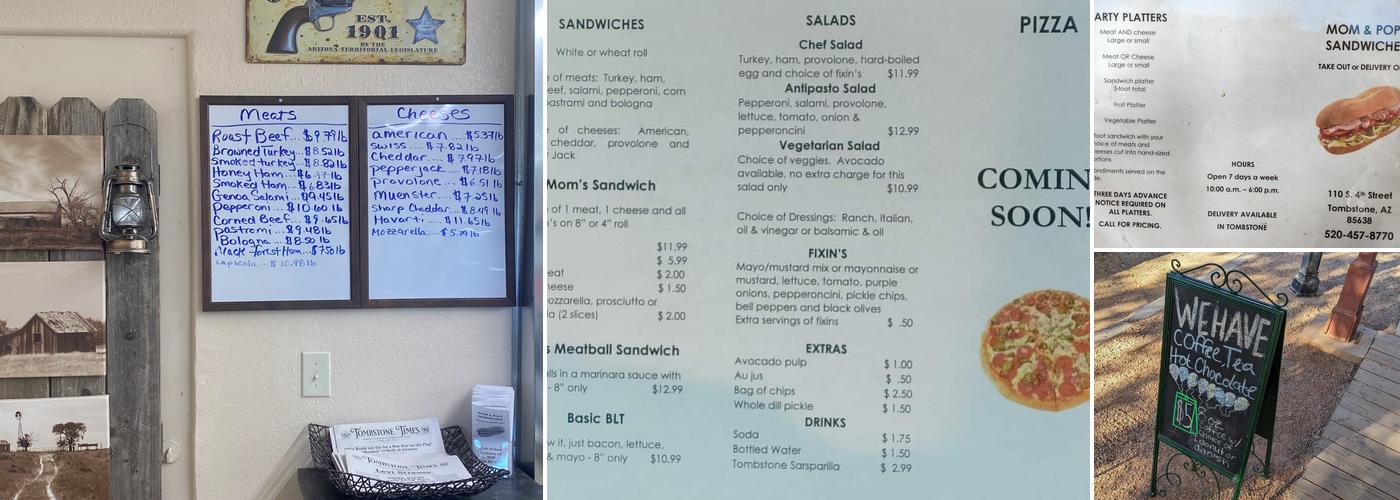 EST.
1901
BY THE
ARIZONA TERRITORIAL LEGISLATURE
Meats
Roast Beef... $9.79lb
Browned Turkey... $8.52lb
Smoked turkey... $8.82lb
Honey Ham... $6.97lb
Smoked Ham... $6.83lb
Genoa Salami... $9.45lb
Pepperoni... $10.60lb
Corned Beef... $9.65lb
pastromi... $9.48lb
Bologna... $8.50lb
Black forest Ham... $7.50lb
Capicola --- $10.98lb
Cheeses
american .... $5.37lb
swiss .... $7.82lb
Cheddar .... $7.97lb
pepperjack .... $7.18lb
provolone .... $6.51lb
Muenster .... $7.55lb
Sharp Cheddar .... $8.49lb
Havarti .... $11.65lb
Mozzarella .... $5.79lb
TOMBSTONE TIMES
TOMBSTONE TIMES
SANDWICHES
White or wheat roll
e of meats: Turkey, ham,
eef, salami, pepperoni, corn
astrami and bologna
of cheeses: American,
cheddar, provolone and
r Jack
Mom's Sandwich
of 1 meat, 1 cheese and all
's on 8" or 4" roll
$11.99
$ 5.99
eat $ 2.00
heese $ 1.50
ozzarella, prosciutto or
la (2 slices) $ 2.00
s Meatball Sandwich
lls in a marinara sauce with
- 8" only $12.99
Basic BLT
w it, just bacon, lettuce,
& mayo - 8" only $10.99
SALADS
Chef Salad
Turkey, ham, provolone, hard-boiled
egg and choice of fixin's $11.99
Antipasto Salad
Pepperoni, salami, provolone,
lettuce, tomato, onion &
pepperoncini $12.99
Vegetarian Salad
Choice of veggies. Avocado
available, no extra charge for this
salad only $10.99
Choice of Dressings: Ranch, Italian,
oil & vinegar or balsamic & oil
FIXIN'S
Mayo/mustard mix or mayonnaise or
mustard, lettuce, tomato, purple
onions, pepperoncini, pickle chips,
bell peppers and black olives
Extra servings of fixins $ .50
EXTRAS
Avocado pulp $ 1.00
Au jus $ .50
Bag of chips $ 2.50
Whole dill pickle $ 1.50
DRINKS
Soda $ 1.75
Bottled Water $ 1.50
Tombstone Sarsparilla $ 2.99
PIZZA
COMIN
SOON!
ARTY PLATTERS
Meat AND cheese
Large or small
Meat OR Cheese
Large or small
Sandwich platter
3-foot total
Fruit Platter
Vegetable Platter
foot sandwich with your
hoice of meats and
heeses cut into hand-sized
ortions
ondiments served on the
de.
THREE DAYS ADVANCE
NOTICE REQUIRED ON
ALL PLATTERS.
CALL FOR PRICING.
HOURS
Open 7 days a week
10:00 a.m. – 6:00 p.m.
DELIVERY AVAILABLE
IN TOMBSTONE
MOM & POP
SANDWICHE
TAKE OUT or DELIVERY O
110 S. 4th Street
Tombstone, AZ
85638
520-457-8770
WE HAVE
Coffee, Tea
Hot Chocolate
$5
8 oz
Coffee w/
choice of
donut or
danish